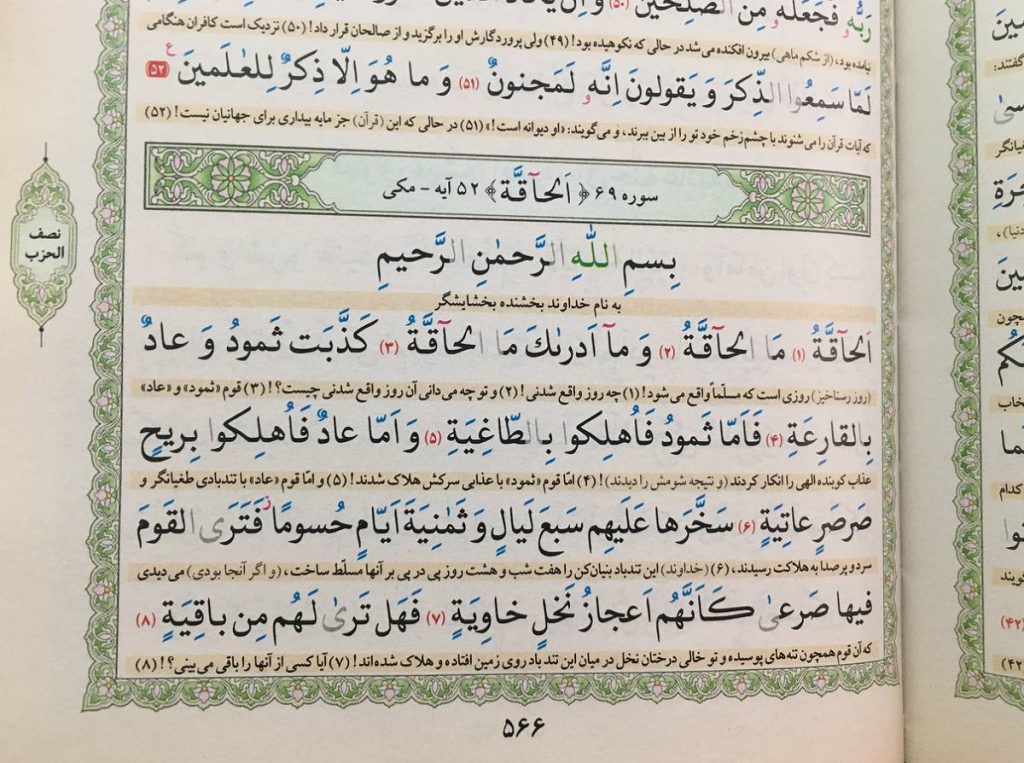 رَبُّهُ فَجَعَلَهُ مِنَ الصّٰلِحينَ (۵۰) وَ اِن
نیامده بود، (از شکم ماهی) بیرون افکنده می‌شد در حالی که نکوهیده بود! (۴۹) ولی پروردگارش او را برگزید و از صالحان قرار داد! (۵۰) نزدیک است کافران هنگامی
لَمّا سَمِعُوا الذِّكرَ وَ يَقولونَ اِنَّهُ لَمَجنونٌ (۵۱) وَ ما هُوَ اِلّا ذِكرٌ لِلعٰلَمينَ (۵۲) ع
که آیات قرآن را می‌شنوند با چشم زخم خود تو را از بین ببرند، و می‌گویند: «او دیوانه است!» (۵۱) در حالی که این (قرآن) جز مایه بیداری برای جهانیان نیست! (۵۲)
سوره ۶۹ ﴿اَلحآقَّة﴾ ۵۲ آیه - مکی
نصف
الحزب
بِسمِ اللّٰهِ الرَّحمٰنِ الرَّحيمِ
به نام خداوند بخشنده بخشایشگر
اَلحآقَّةُ (۱) مَا الحآقَّةُ (۲) وَ مآ اَدرىٰكَ مَا الحآقَّةُ (۳) كَذَّبَت ثَمودُ وَ عادٌ
(روز رستاخیز) روزی است که مسلّماً واقع می‌شود! (۱) چه روز واقع شدنی! (۲) و تو چه می‌دانی آن روز واقع شدنی چیست؟! (۳) قوم «ثمود» و «عاد»
بِالقارِعَةِ (۴) فَاَمّا ثَمودُ فَاُهلِكوا بِالطّاغِيَةِ (۵) وَ اَمّا عادٌ فَاُهلِكوا بِريحٍ
عذاب کوبنده الهی را انکار کردند (و نتیجه شومش را دیدند)! (۴) امّا قوم «ثمود» با عذابی سرکش هلاک شدند! (۵) و امّا قوم «عاد» با تندبادی طغیانگر و
صَرصَرٍ عاتِيَةٍ (۶) سَخَّرَها عَلَيهِم سَبعَ لَيالٍ وَ ثَمٰنِيَةَ اَيّامٍ حُسومًا فَتَرَى القَومَ
سرد و پرصدا به هلاکت رسیدند، (۶) (خداوند) این تندباد بنیان‌کن را هفت شب و هشت روز پی در پی بر آنها مسلّط ساخت، (و اگر آنجا بودی) می‌دیدی
فيها صَرعىٰ كَاَنَّهُم اَعجازُ نَخلٍ خاوِيَةٍ (۷) فَهَل تَرىٰ لَهُم مِن باقِيَةٍ (۸)
که آن قوم همچون تنه‌های پوسیده و تو خالی درختان نخل در میان این تند باد روی زمین افتاده و هلاک شده‌اند! (۷) آیا کسی از آنها را باقی می‌بینی؟! (۸)
۵۶۶